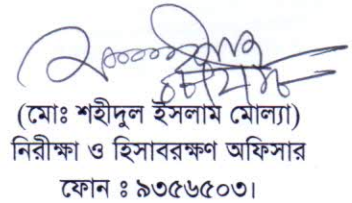 (মোঃ শহীদুল ইসলাম মোল্যা)
নিরীক্ষা ও হিসাবরক্ষণ অফিসার
ফোন ঃ ৯৩৫৬৫০৩।